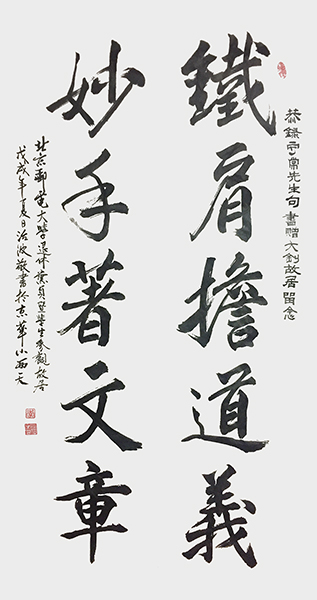 恭錄守常先生句 書贈大釗故居留念
鐵肩擔道義
妙手著文章
北京郵電大學退休黨員暨學生參觀故居
戊戌年夏日治波敬書於京華小西天